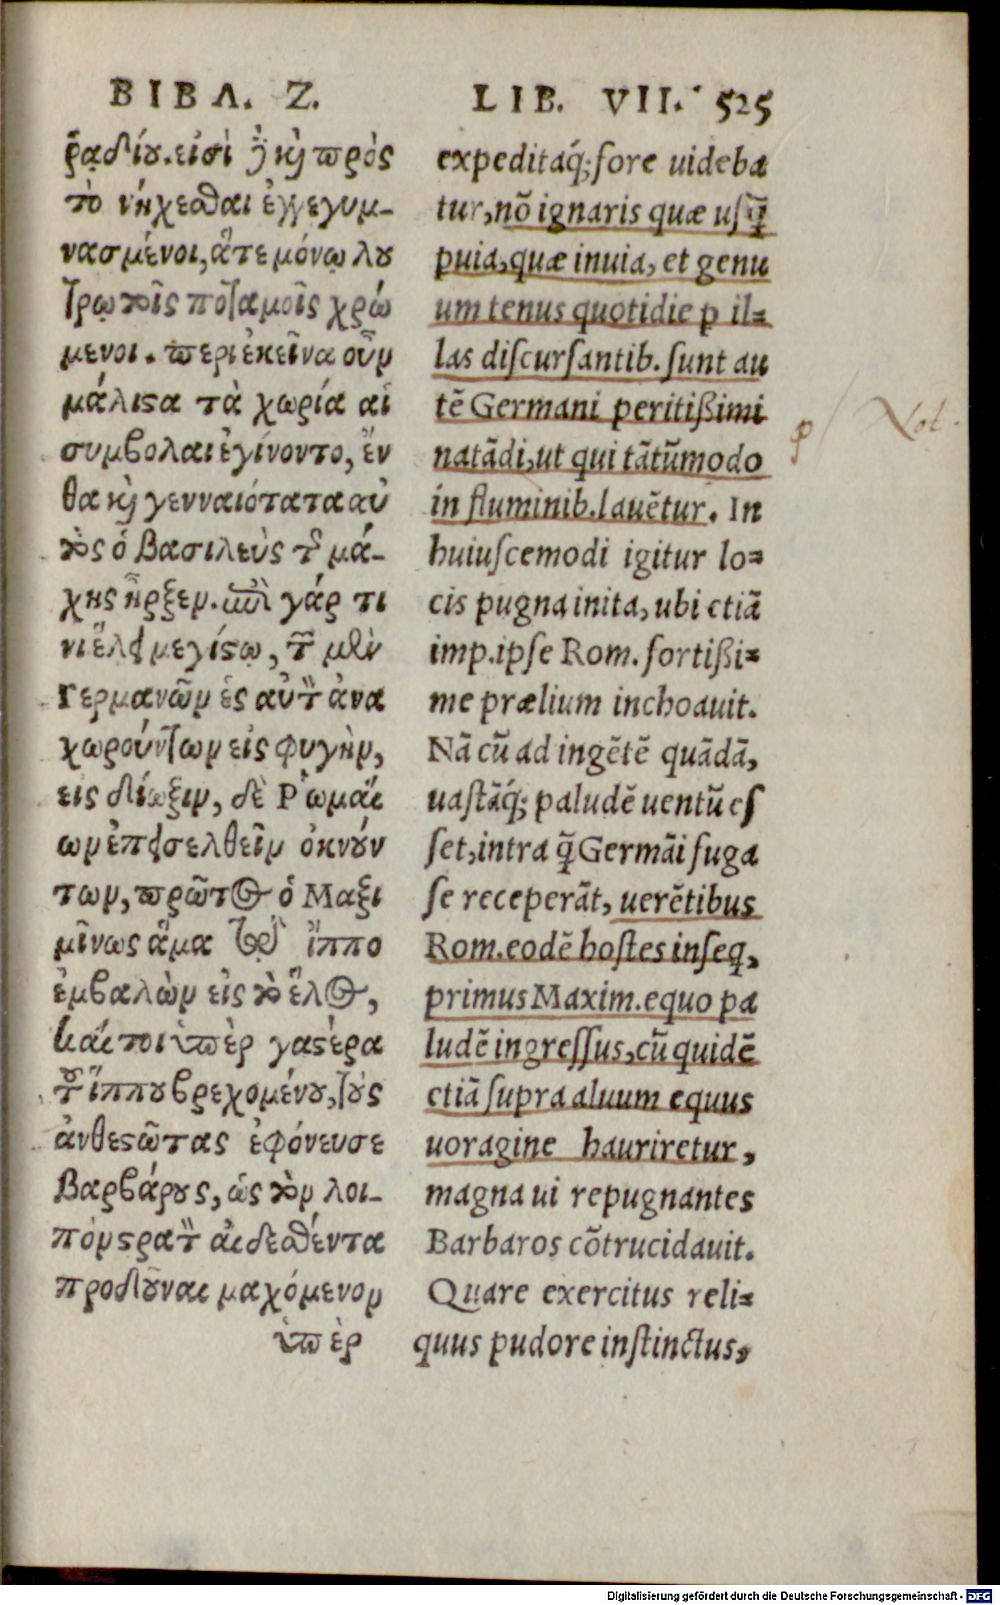 ΒΙΒΛ. Ζ.
ῥᾳδίου. εἰσὶ ἢ καὶ πρὸς
τὸ νήχεσθαι ἐγγεγυμ-
νασμένοι, ἅτε μόνῳ λου
τρῳ τοῖς ποταμοῖς χρώ
μενοι. περὶ ἐκεῖνα οὖν
μάλιστα τὰ χωρία αἱ
συμβολαι ἐγίνοντο, ἔν
θα καὶ γενναιότατα αὐ
τὸς ὁ βασιλεὺς τῆ μά-
χης ἦρξεν. ἐπὶ γάρ τι
νι ἕλει μεγίστῳ, τῶν μὲν
Γερμανῶν ἐς αὐτὸ ἀνα
χωρούντων εἰς φυγὴν,
εις δίωξιν, δὲ Ῥωμαί
ων ἐπεισελθεῖν ὀκνούν
των, πρῶτος ὁ Μαξι
μῖνως ἅμα τῷ ἵππο
ἐμβαλὼν εἰς τὸ ἕλος,
καίτοι ὑπὲρ γαστέρα
τοῦ ἵππου βρεχομένου, τοὺς
ἀνθεστῶτας ἐφόνευσε
βαρβάρους, ὡς τὸν λοι-
πὸν στρατὸν αἰδεσθέντα
προδοῦναι μαχόμενον
ὑπὲρ
LIB. VII. 525
expeditáq́; fore uideba
tur, nõ ignaris quæ usq̃
puia, quæ inuia, et genu
um tenus quotidie p il=
las discursantib. sunt au
tẽ Germani peritißimi
natãdi, ut qui tãtũmodo
in fluminib. lauẽtur. In
huiuscemodi igitur lo=
cis pugna inita, ubi etiã
imp. ipse Rom. fortißi=
me prælium inchoauit.
Nã cũ ad ingẽtẽ quãdã,
uastãq́; paludẽ uentũ es
set, intra q̃ Germãi fuga
se receperãt, uerẽtibus
Rom. eodẽ hostes inseq,
primus Maxim. equo pa
ludẽ ingressus, cũ quidẽ
etiã supra aluum equus
uoragine hauriretur,
magna ui repugnantes
Barbaros cõtrucidauit.
Quare exercitus reli=
quus pudore instinctus,
p / Not.
Digitalisierung gefördert durch die Deutsche Forschungsgemeinschaft - DFG